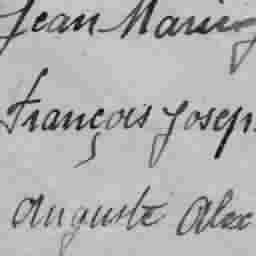 Jean Marie
François Josep
Auguste Alex